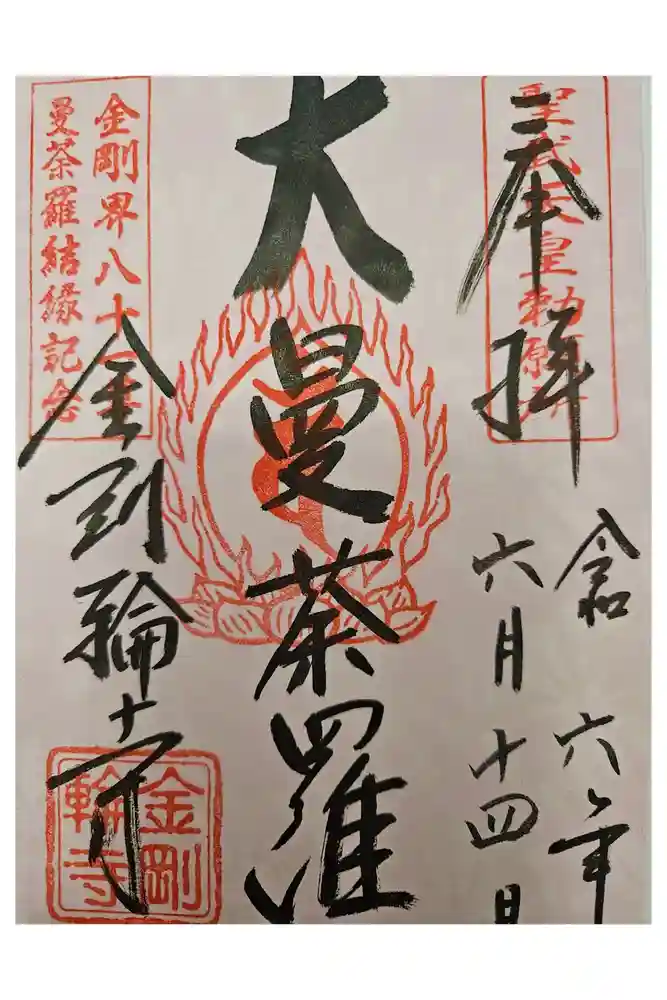 奉拝
聖武天皇勅願所
令和六年
六月十四日
大曼荼羅
金剛界八十一尊
曼荼羅結縁記念
金剛輪寺
金剛輪寺